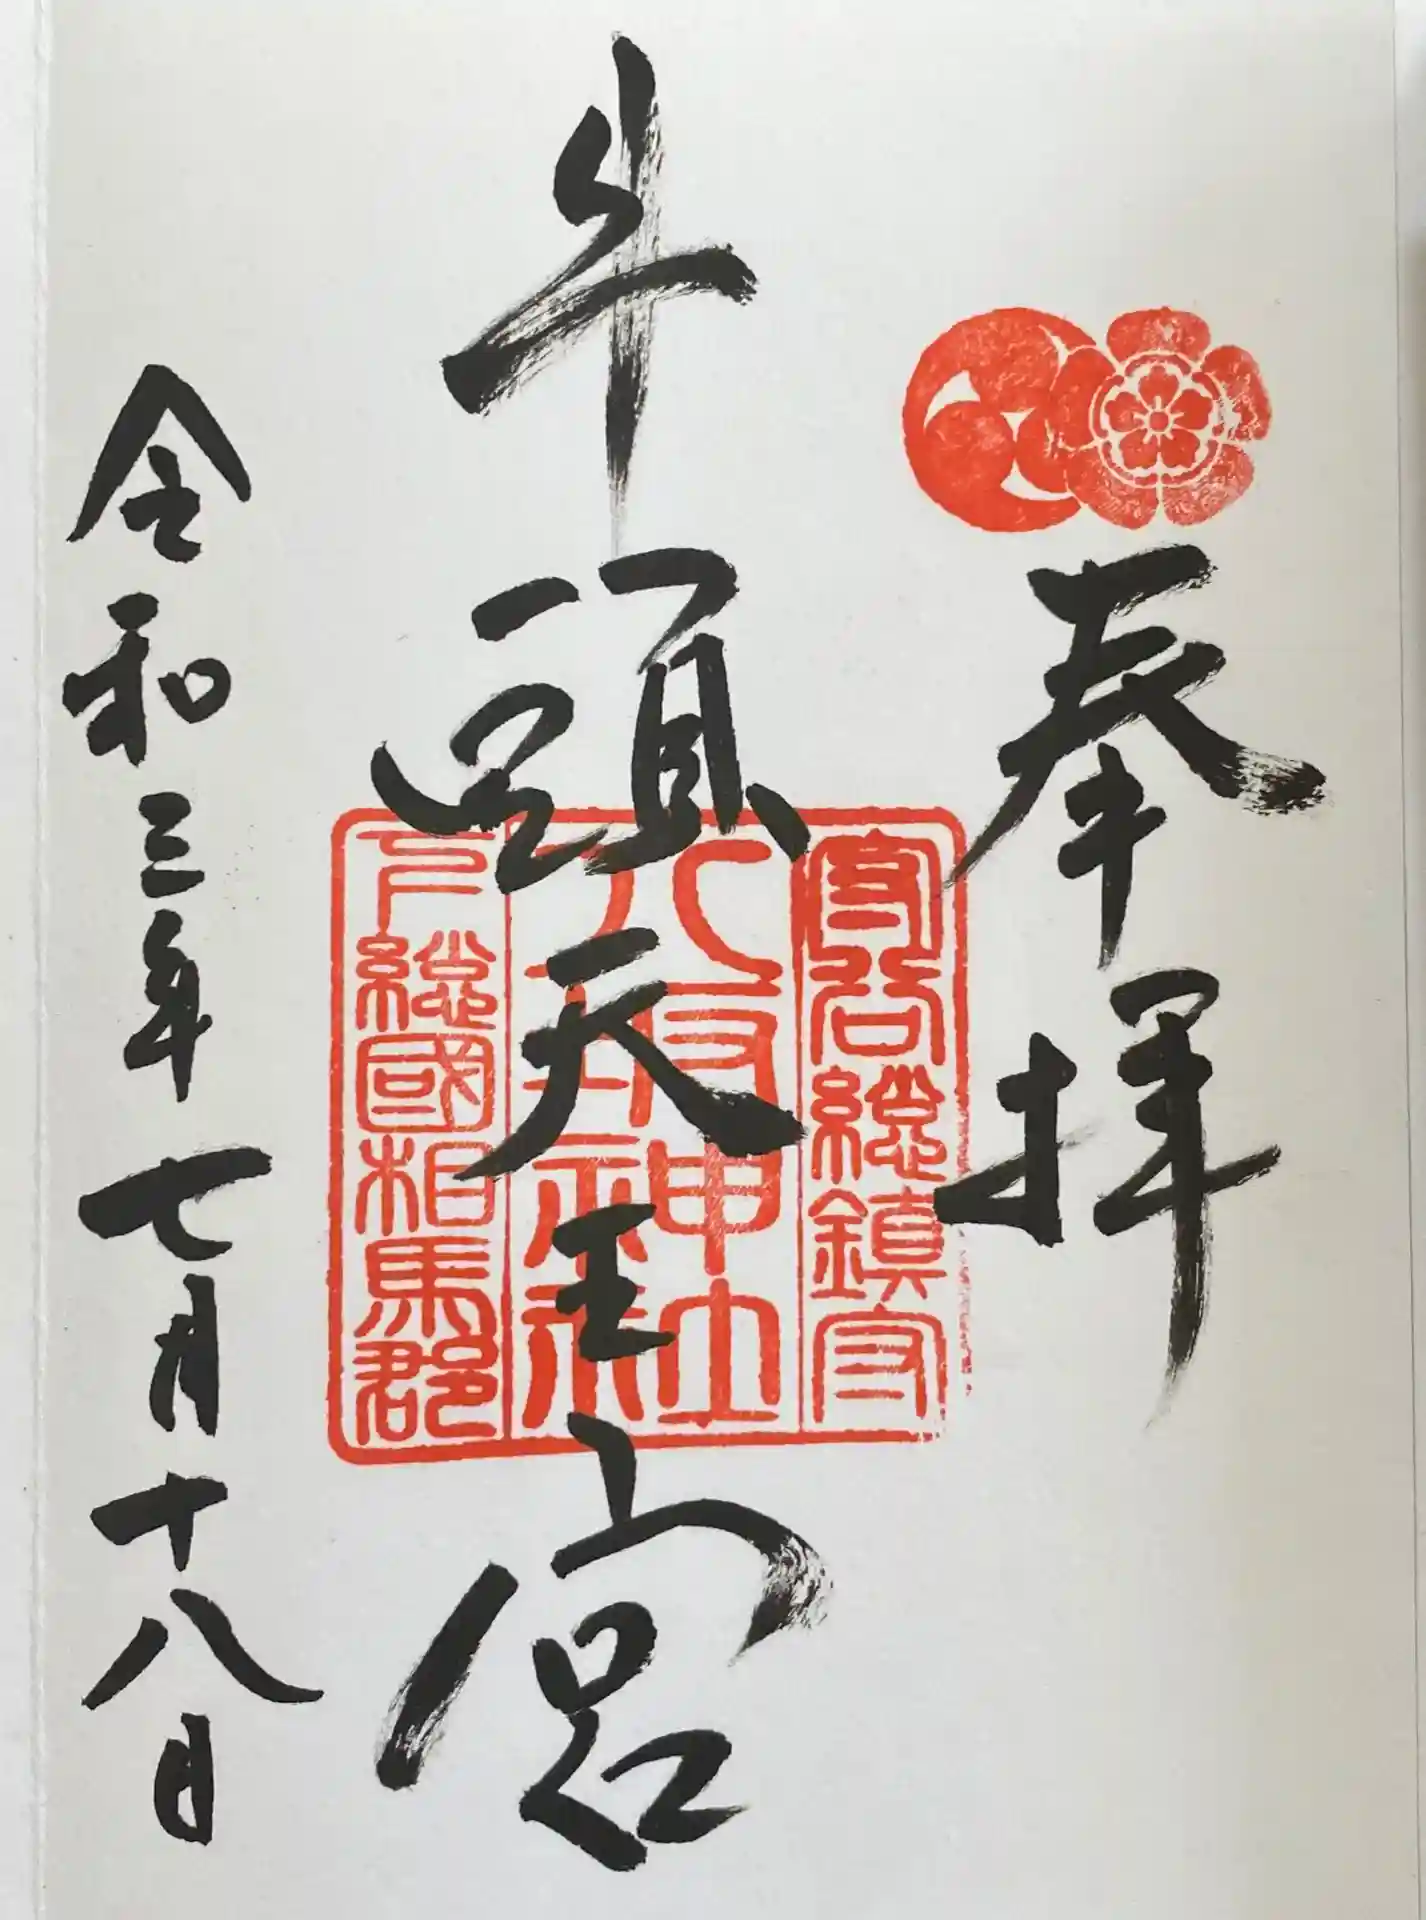 奉拝
守谷總鎮守
牛頭天王宮
八坂神社
下總國相馬郡
令和三年七月十八日